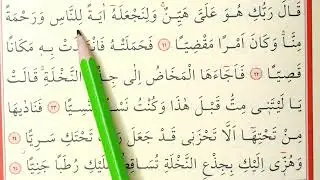 قَالَ رَبُّكِ هُوَ عَلَيَّ هَيِّنٌ وَلِنَجْعَلَهُ اٰيَةً لِلنَّاسِ وَرَحْمَةً
مِنَّا وَكَانَ اَمْرًا مَقْضِيًّا ﴿٢١﴾ فَحَمَلَتْهُ فَانْتَبَذَتْ بِهِ مَكَانًا
قَصِيًّا ﴿٢٢﴾ فَاَجَاءَهَا الْمَخَاضُ اِلٰى جِذْعِ النَّخْلَةِ قَالَتْ
يَا لَيْتَنِي مِتُّ قَبْلَ هٰذَا وَكُنْتُ نَسْيًا مَنْسِيًّا ﴿٢٣﴾ فَنَادٰيهَا
مِنْ تَحْتِهَا اَلَّا تَحْزَنِي قَدْ جَعَلَ رَبُّكِ تَحْتَكِ سَرِيًّا ﴿٢٤﴾
وَهُزِّي اِلَيْكِ بِجِذْعِ النَّخْلَةِ تُسَاقِطْ عَلَيْكِ رُطَبًا جَنِيًّا ﴿٢٥﴾